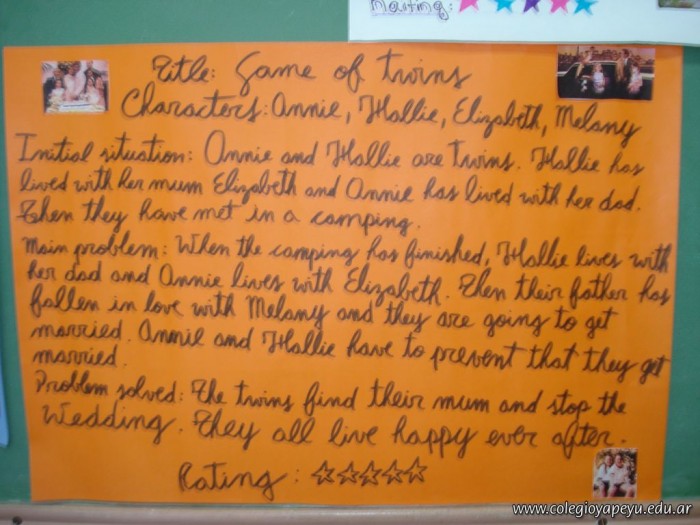 Rating:
Title: Game of twins
Characters: Annie, Hallie, Elizabeth, Melany
Initial situation: Annie and Hallie are twins. Hallie has
lived with her mum Elizabeth and Annie has lived with her dad.
Then they have met in a camping.
Main problem: When the camping has finished, Hallie lives with
her dad and Annie lives with Elizabeth. Then their father has
fallen in love with Melany and they are going to get
married. Annie and Hallie have to prevent that they get
married.
Problem solved: The twins find their mum and stop the
Wedding. They all live happy ever after.
Rating: ☆☆☆☆☆
www.colegioyapeyu.edu.ar